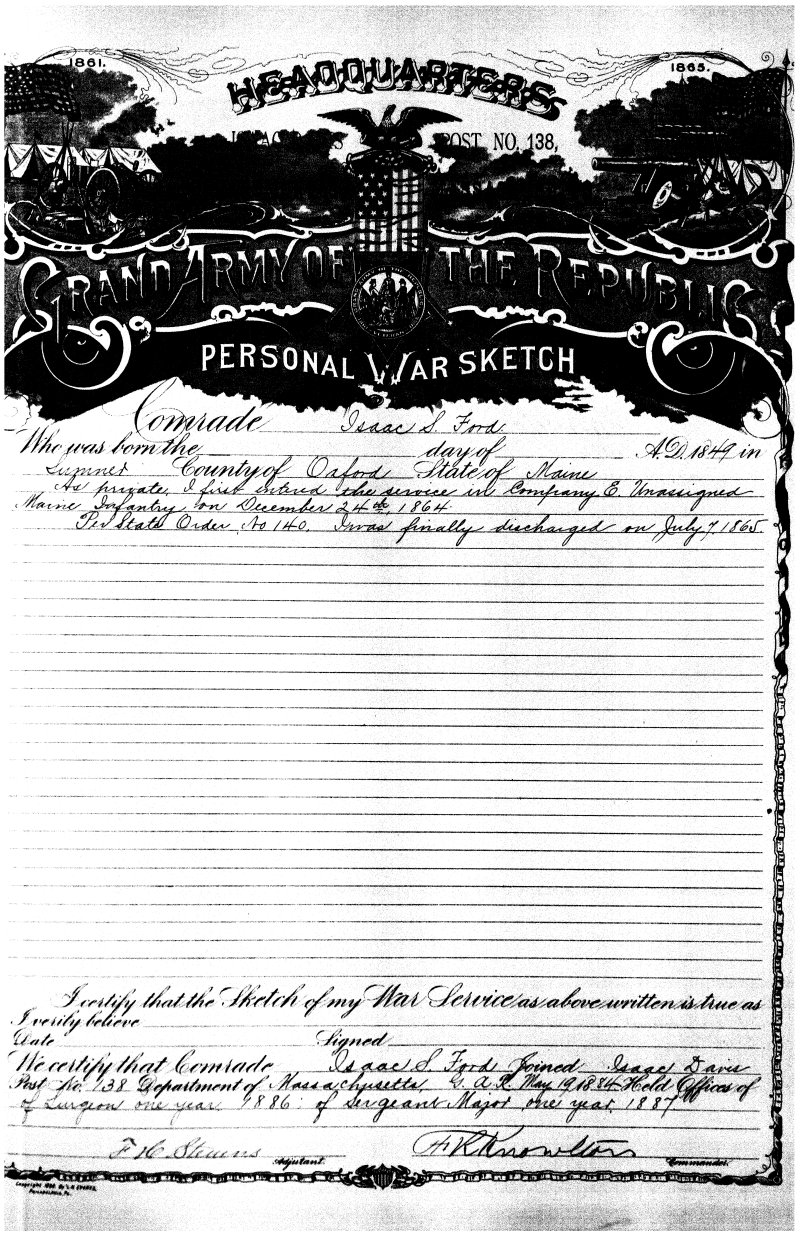 1861.
1865.
HEADQUARTERS
POST NO. 138,
GRAND ARMY OF THE REPUBLIC
PERSONAL WAR SKETCH
Comrade Isaac S. Ford
Who was born the day of A.D. 1849 in
Sumner County of Oxford State of Maine
As private, I first entered the service in Company E. Unassigned
Maine Infantry, on December 24th, 1864.
Per State Order, No 140, I was finally discharged on July 7, 1865.
I certify that the Sketch of my War Service as above written is true as
I verily believe
Date Signed
We certify that Comrade Isaac S. Ford Joined Isaac Davis
Post No. 138 Department of Massachusetts, G. A. R. May 19 1884 Held Offices of
of Surgeon one year, 1886: of Sergeant Major one year, 1887
F. H. Stevens Adjutant. Knowlton Commander.
Copyright
Philadelphia, Pa.